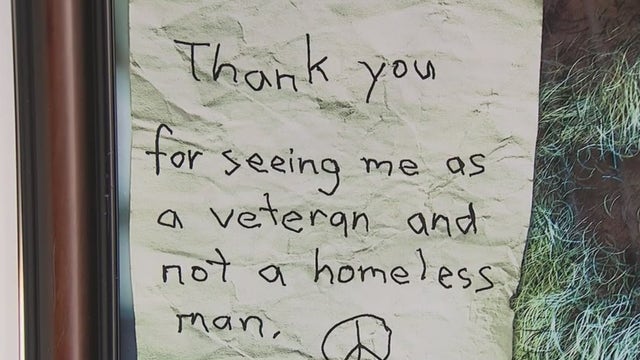 Thank you
for seeing me as
a veteran and
not a homeless
man.